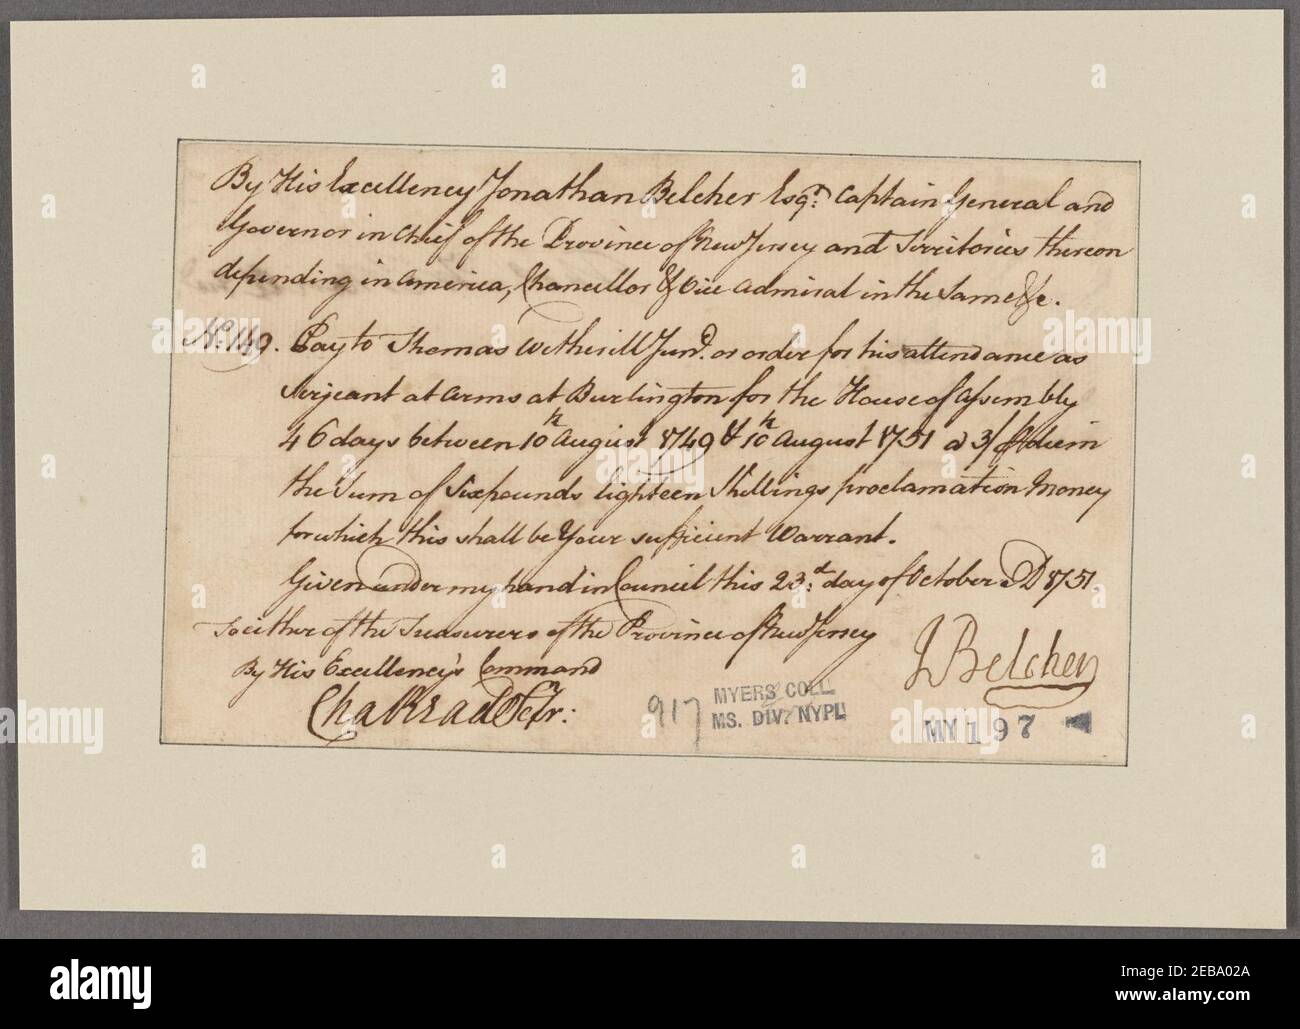 By His Excellency Jonathan Belcher Esqr. Captain General and
Governor in Chief of the Province of New Jersey and Territories thereon
depending in America, Chancellor & Vice Admiral in the Same &c.
No. 149. Pay to Thomas Wetherill Junr. or order for his attendance as
Serjeant at Arms at Burlington for the House of Assembly
46 days between 10th August 1749 & 10th August 1751 a 3/ ⅌ diem
the Sum of Six pounds Eighteen Shillings proclamation Money
for which this shall be Your sufficient Warrant.
Given under my hand in Council this 23d. day of October AD 1751.
To either of the Treasurers of the Province of New Jersey
By His Excellency's Command
J Belcher
Cha Read Secr:
917
MYERS COLL.
MS. DIV. NYPL
MY 197
alamy
Image ID: 2EBA02A
www.alamy.com